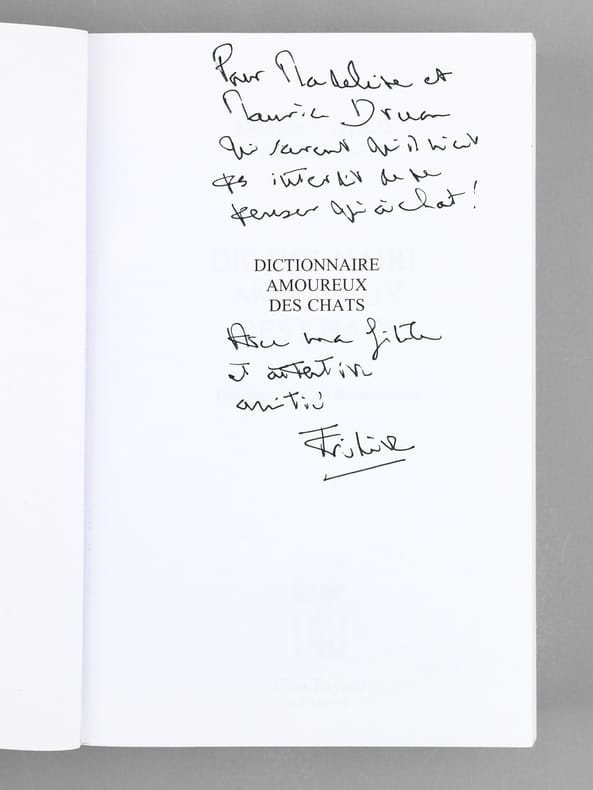 Pour Madeleine et
Maurice Druon
qui savent qu'il n'est
pas interdit de ne
penser qu'à chat !
DICTIONNAIRE
AMOUREUX
DES CHATS
Avec ma fidèle
et attentive
amitié